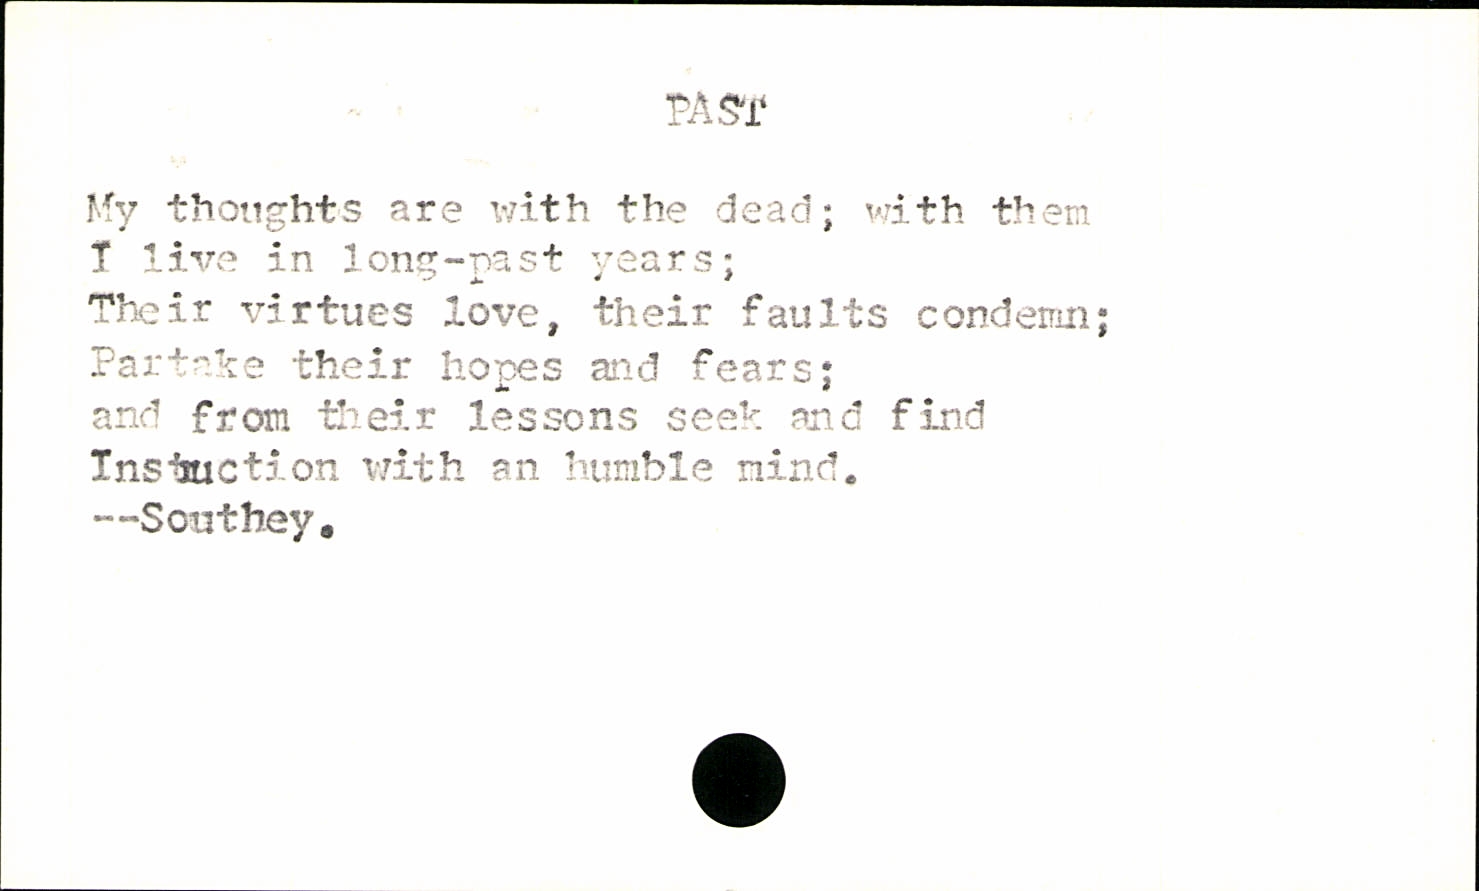 PAST
My thoughts are with the dead; with them
I live in long-past years;
Their virtues love, their faults condemn;
Partake their hopes and fears;
and from their lessons seek and find
Instuction with an humble mind.
--Southey.